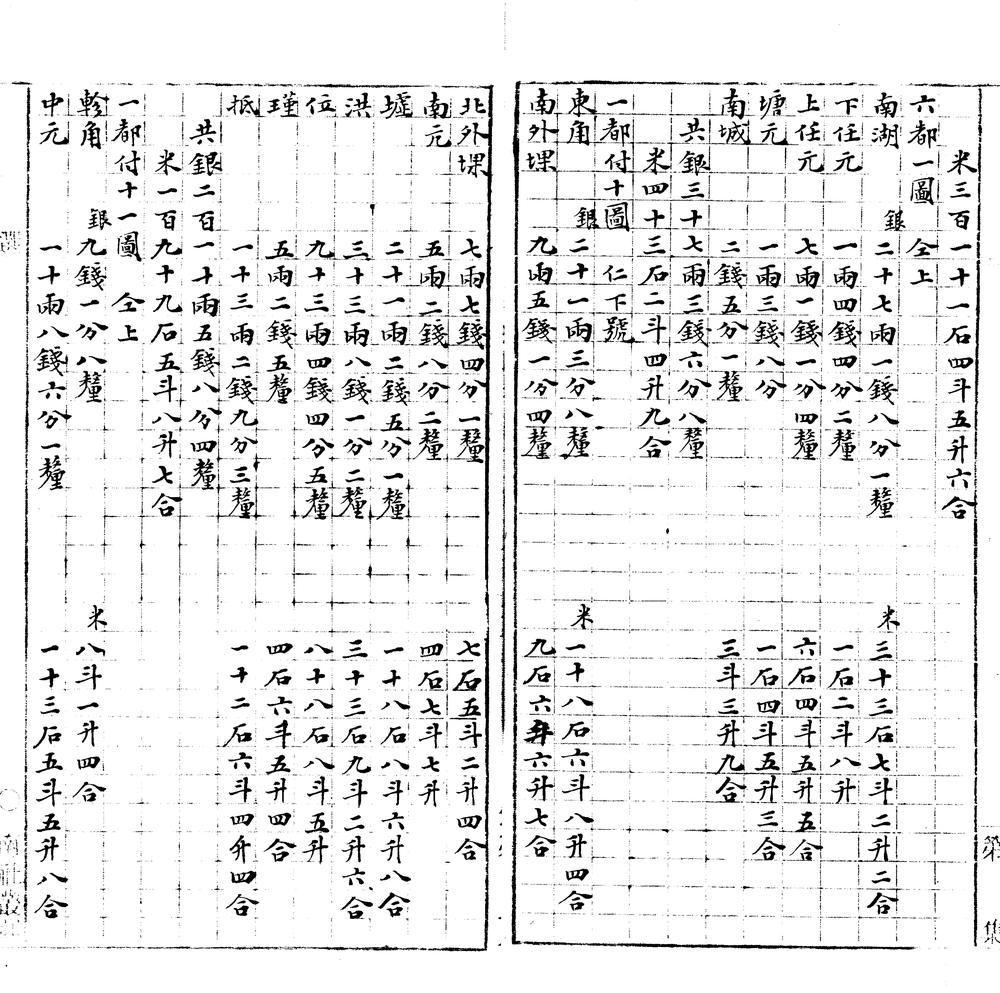 米三百一十一石四斗五升六合
六都一圖 仝上
南湖 銀二十七兩一錢八分一釐 米三十三石七斗二升二合
下任元 一兩四錢四分二釐 一石二斗八升
上任元 七兩一錢一分四釐 六石四斗五升五合
塘元 一兩三錢八分 一石四斗五升三合
南城 二錢五分一釐 三斗三升九合
共銀三十七兩三錢六分八釐
米四十三石二斗四升九合
一都付十圖 仁下號
東角 銀二十一兩三分八釐 米一十八石六斗八升四合
南外堁 九兩五錢一分四釐 九石六斗六升七合
北外堁 七兩七錢四分一釐 七石五斗二升四合
南元 五兩二錢八分二釐 四石七斗七升
墟 二十一兩二錢五分一釐 一十八石八斗六升八合
洪 三十三兩八錢一分二釐 三十三石九斗二升六合
位 九十三兩四錢四分五釐 八十八石八斗五升
瑾 五兩二錢五釐 四石六斗五升四合
抵 一十三兩二錢九分三釐 一十二石六斗四升四合
共銀二百一十兩五錢八分四釐
米一百九十九石五斗八升七合
一都付十一圖 仝上
軫角 銀九錢一分八釐 米八斗一升四合
中元 一十兩八錢六分一釐 一十三石五斗五升八合
第 集